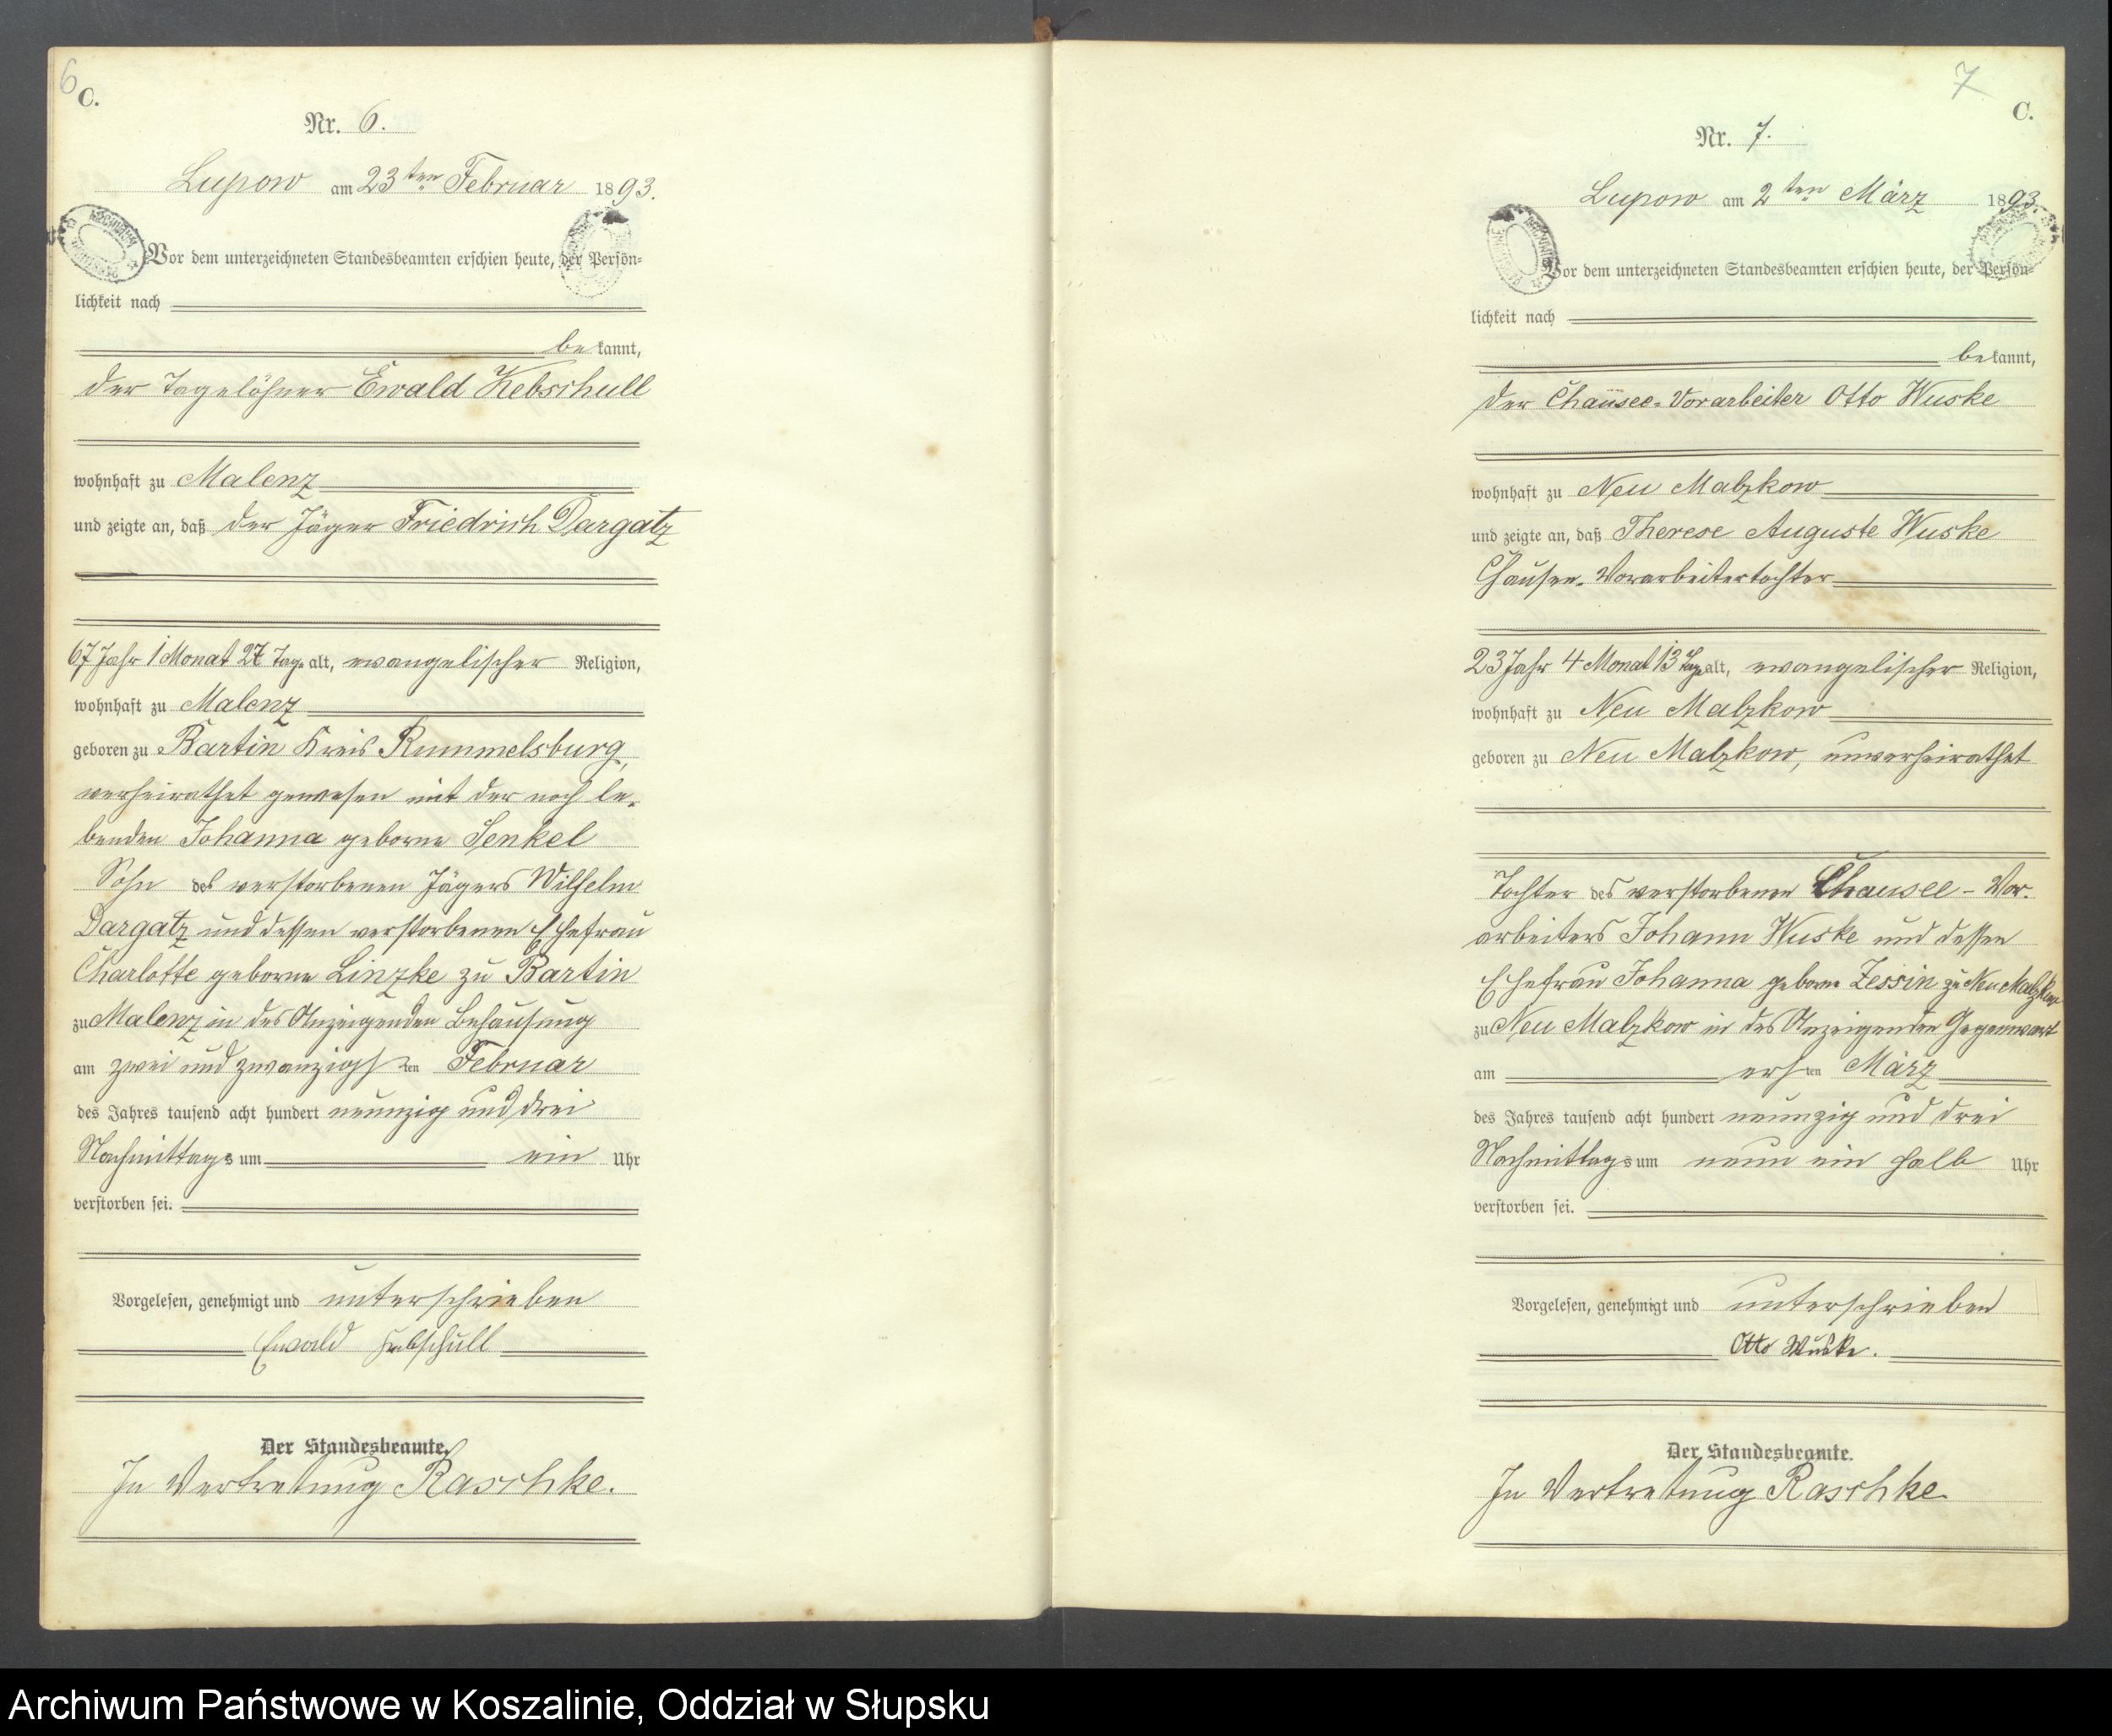 6
C.
Nr. 6.
Lupow am 23ten Februar 1893.
Vor dem unterzeichneten Standesbeamten erschien heute, der Persön-
lichkeit nach
bekannt,
der Tagelöhner Ewald Kebschull
wohnhaft zu Malenz
und zeigte an, daß der Jäger Friedrich Dargatz
67 Jahr 1 Monat 27 Tage alt, evangelischer Religion,
wohnhaft zu Malenz
geboren zu Bartin Kreis Rummelsburg,
verheirathet gewesen mit der noch le-
benden Johanna geborne Senkel
Sohn des verstorbenen Jägers Wilhelm
Dargatz und dessen verstorbenen Ehefrau
Charlotte geborne Linzke zu Bartin
zu Malenz in des Anzeigenden Behausung
am zwei und zwanzigsten Februar
des Jahres tausend acht hundert neunzig und drei
Nachmittags um ein Uhr
verstorben sei.
Vorgelesen, genehmigt und unterschrieben
Ewald Kebschull
Der Standesbeamte.
In Vertretung Raschke.
7
C.
Nr. 7.
Lupow am 2ten März 1893.
Vor dem unterzeichneten Standesbeamten erschien heute, der Persön-
lichkeit nach
bekannt,
der Chaussee-Vorarbeiter Otto Wuske
wohnhaft zu Neu Malzkow
und zeigte an, daß Therese Auguste Wuske
Chausee-Vorarbeitertochter
23 Jahr 4 Monat 13 Tage alt, evangelischer Religion,
wohnhaft zu Neu Malzkow
geboren zu Neu Malzkow, unverheirathet
Tochter des verstorbenen Chausee-Vor-
arbeiters Johann Wuske und dessen
Ehefrau Johanna geborne Zessin zu Neu Malzkow
zu Neu Malzkow in des Anzeigenden Gegenwart
am ersten März
des Jahres tausend acht hundert neunzig und drei
Nachmittags um neun ein halb Uhr
verstorben sei.
Vorgelesen, genehmigt und unterschrieben
Otto Wuske.
Der Standesbeamte.
In Vertretung Raschke.
Archiwum Państwowe w Koszalinie, Oddział w Słupsku